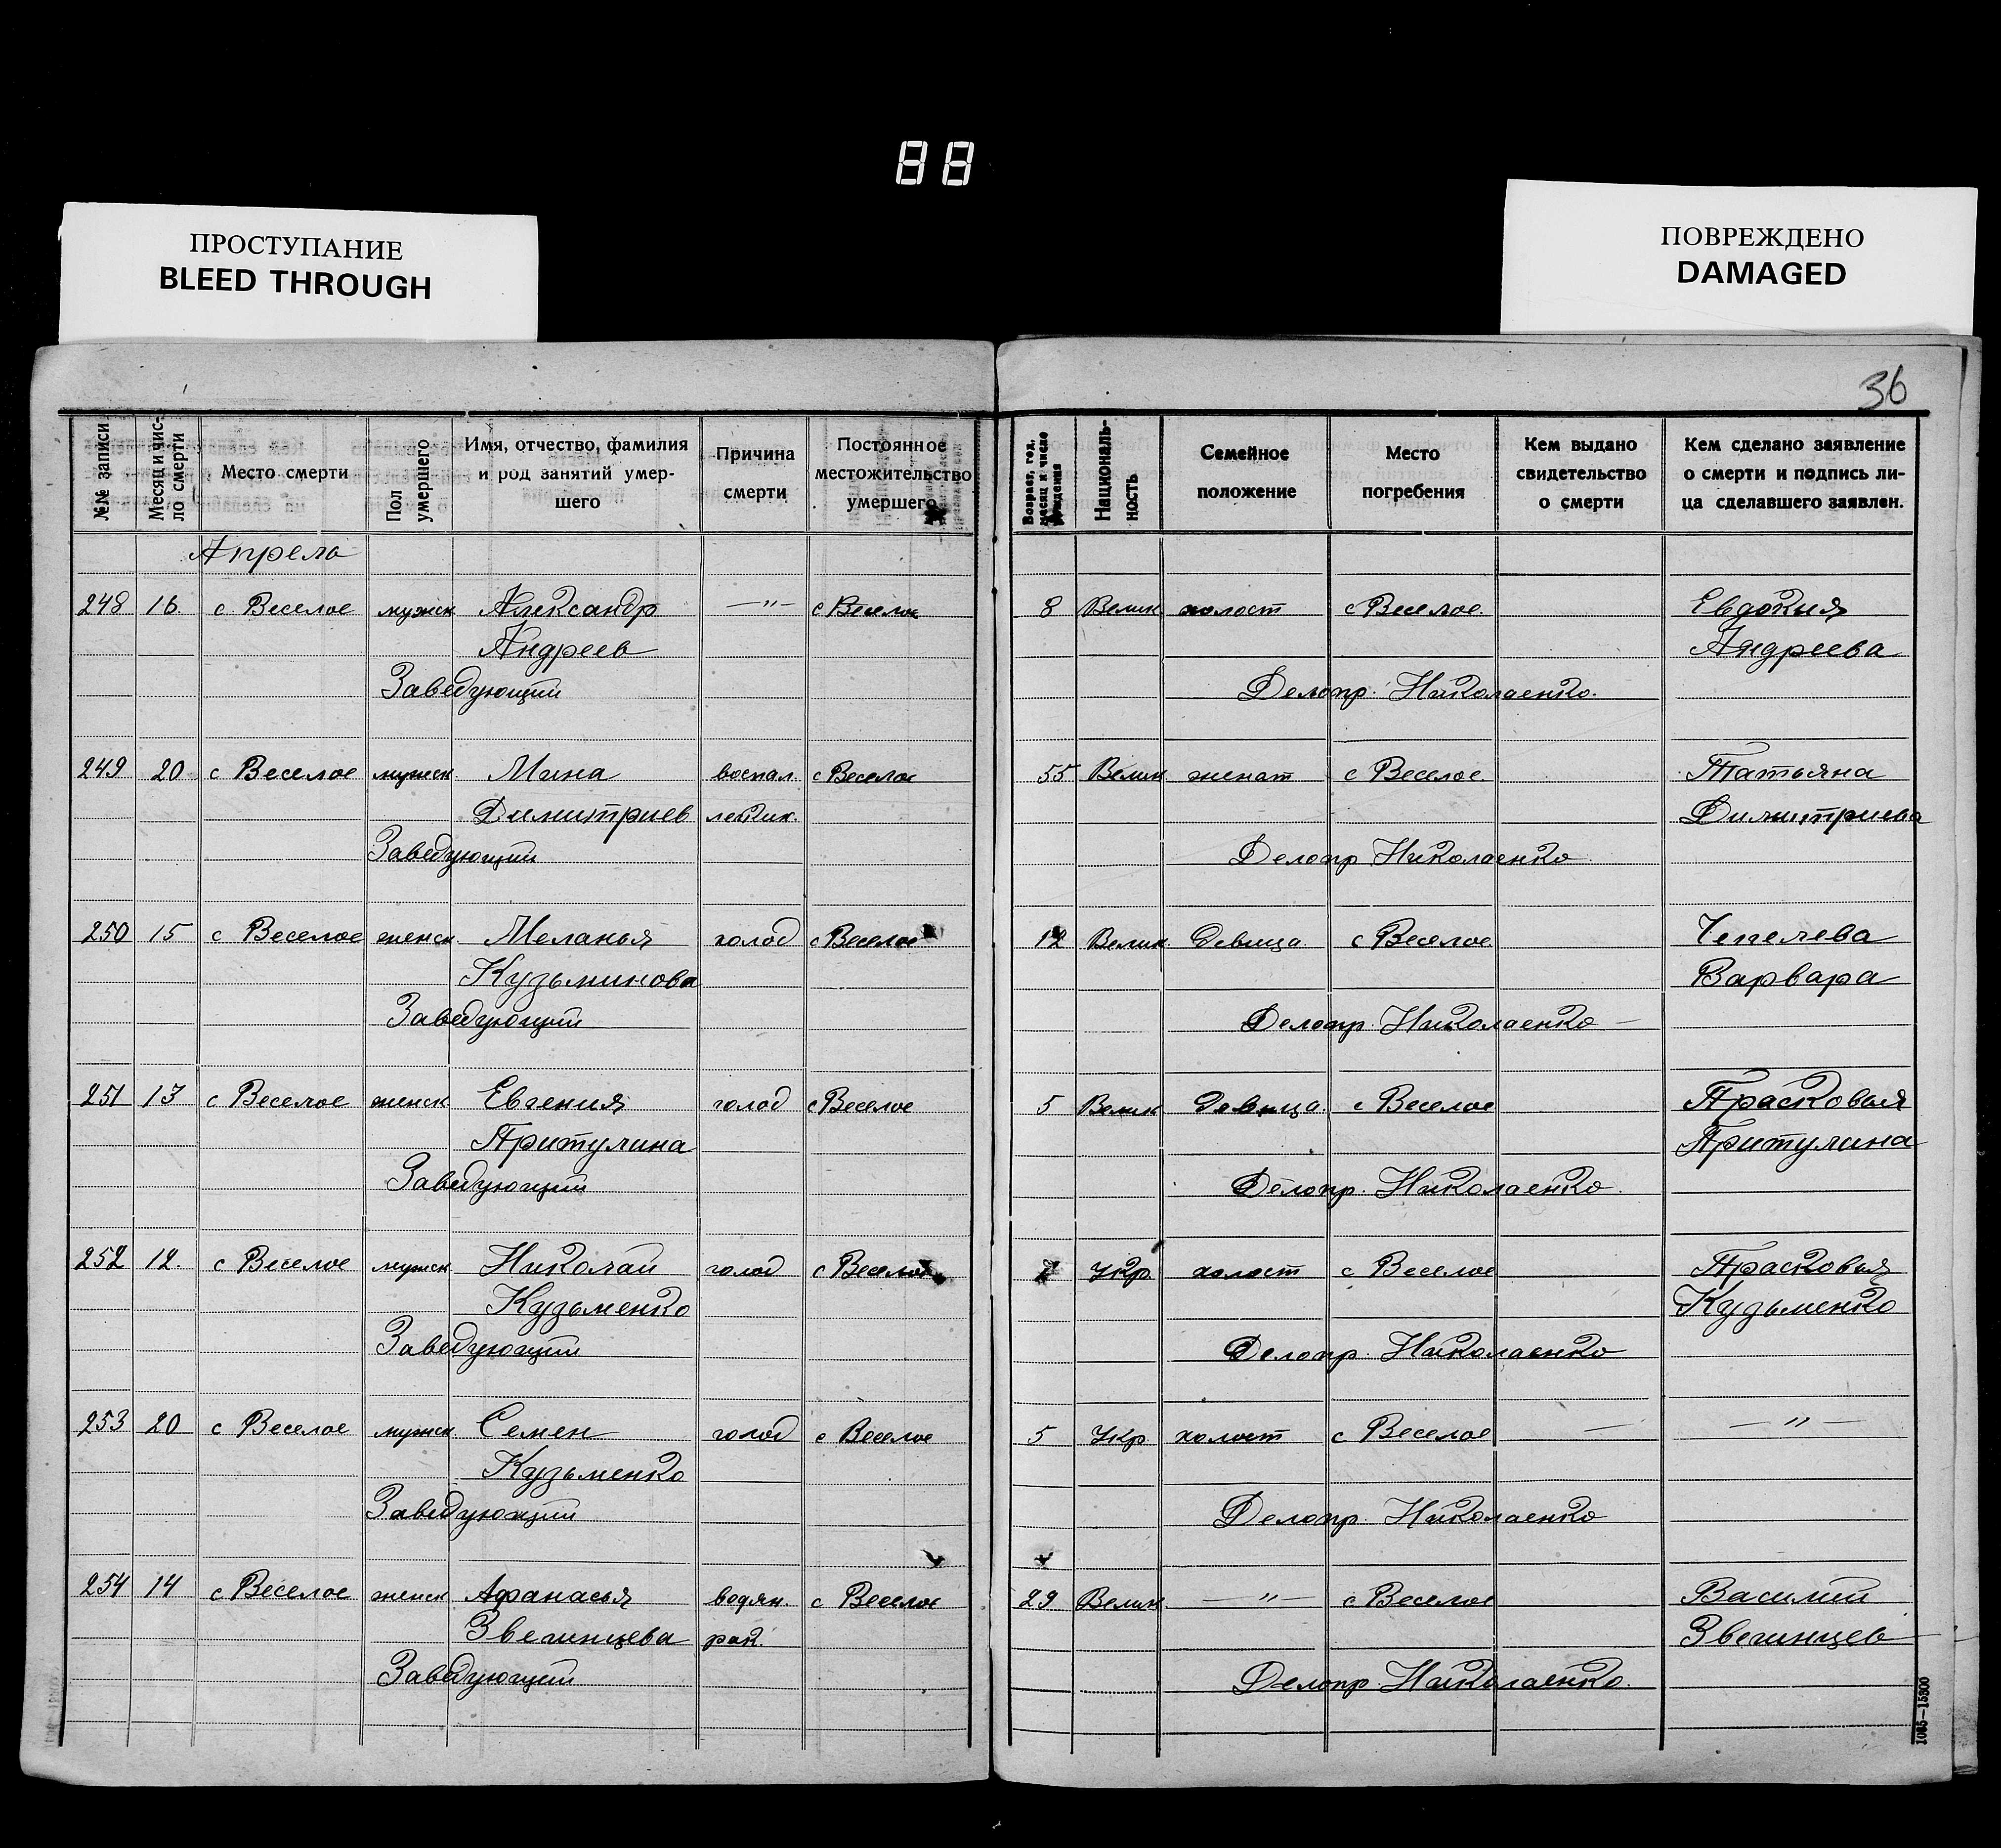 88
ПРОСТУПАНИЕ
BLEED THROUGH
ПОВРЕЖДЕНО
DAMAGED
36
№№ записи
Месяц и чис-
ло смерти
Место смерти
Пол
умершего
Имя, отчество, фамилия
и род занятий умер-
шего
Причина
смерти
Постоянное
местожительство
умершего
Возраст, год,
месяц и число
рождения
Националь-
ность
Семейное
положение
Место
погребения
Кем выдано
свидетельство
о смерти
Кем сделано заявление
о смерти и подпись ли-
ца сделавшего заявлен.
Апрель
248 16. с Веселое мужск Александр —"— с Веселое 8 Велик холост с Веселое. Евдокия
Андреев Андреева
Заведующий Делопр. Николаенко.
249 20 с Веселое мужск. Мина воспал. с Веселое 55 Велик женат с Веселое. Татьяна
Димитриев легких. Димитриева
Заведующий Делопр Николаенко.
250 15 с Веселое женск. Меланья голод с Веселое 12 Велик Девица с Веселое Чепелева
Кузьминова Варвара
Заведующий Делопр. Николаенко —
251 13 с Веселое женск Евгения голод с Веселое 5 Велик Девица. с Веселое Прасковья
Притулина Притулина
Заведующий Делопр. Николаенко.
252 12. с Веселое мужск Николай голод с Веселое Укр. холост с Веселое Прасковья
Кузьменко Кузьменко
Заведующий Делопр. Николаенко
253 20 с Веселое мужск Семен голод с Веселое 5 Укр. холост с Веселое — —"—
Кузьменко
Заведующий Делопр. Николаенко
254 14 с Веселое женск Афанасья водян. с Веселое 29 Велик —"— с Веселое Василий
Звегинцева рак. Звегинцев
Заведующий Делопр Николаенко.
1085—15300